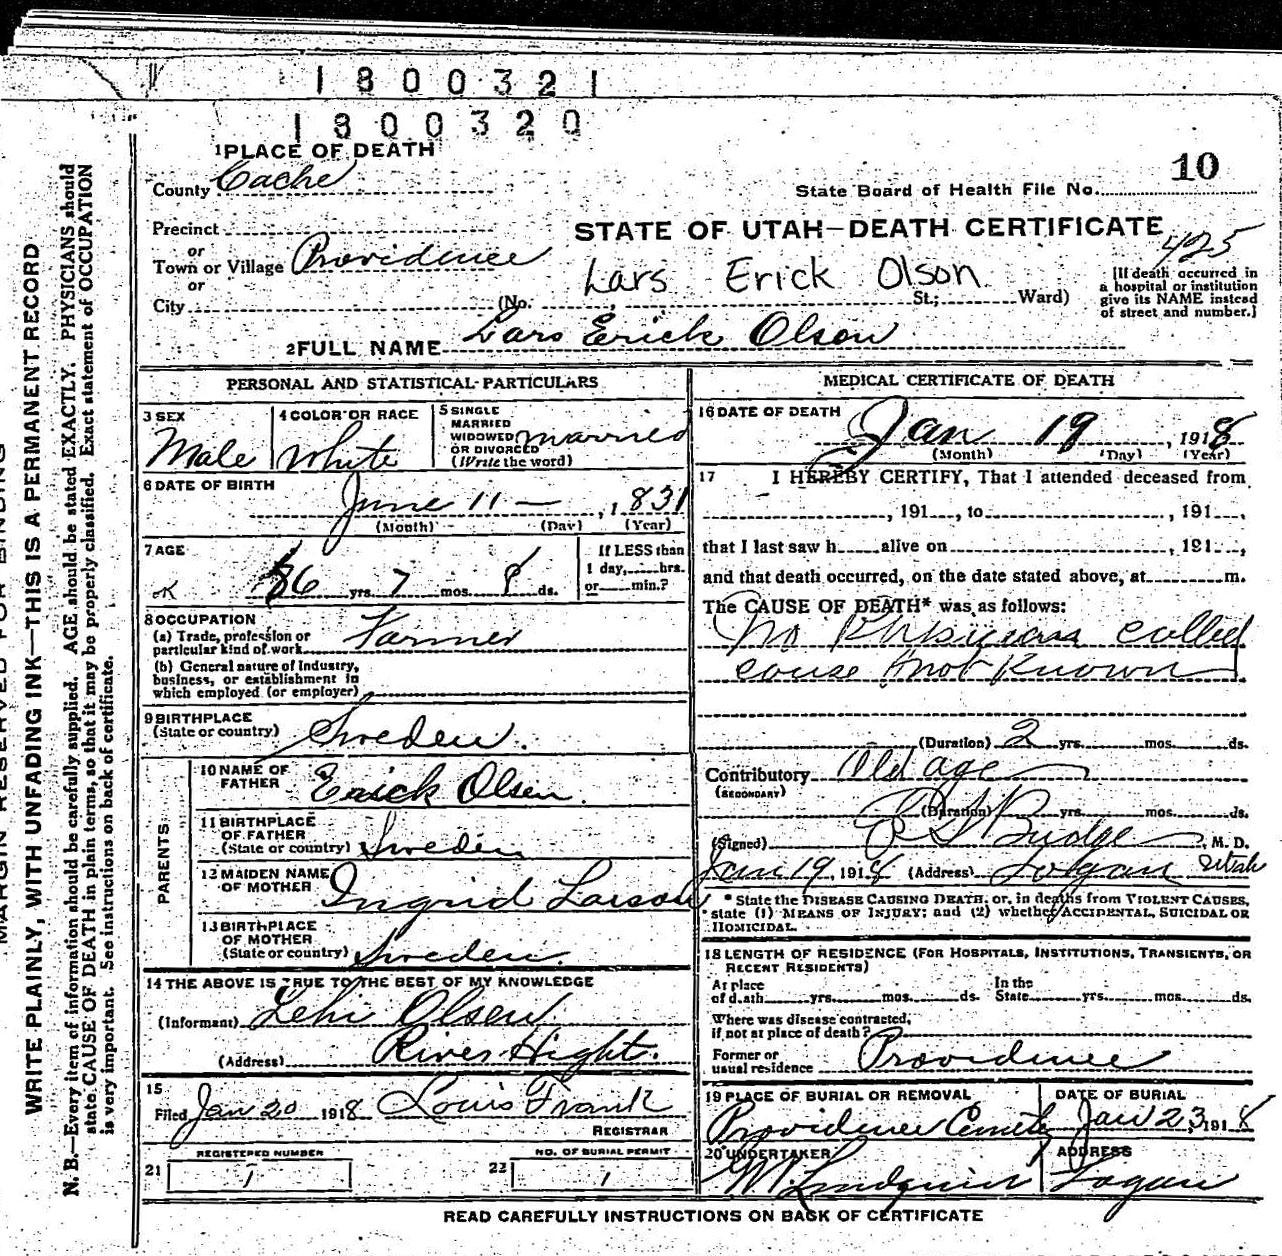 1800321
1800320
1 PLACE OF DEATH
County Cache
State Board of Health File No. 10
Precinct
or
Town or Village Providence
or
City
STATE OF UTAH—DEATH CERTIFICATE
425
Lars Erick Olson
(No. St.; Ward)
[If death occurred in
a hospital or institution
give its NAME instead
of street and number.]
2 FULL NAME Lars Erick Olson
PERSONAL AND STATISTICAL PARTICULARS
3 SEX
Male
4 COLOR OR RACE
White
5 SINGLE
MARRIED
WIDOWED
OR DIVORCED
(Write the word)
married
6 DATE OF BIRTH
June 11 — , 1831
(Month) (Day) (Year)
7 AGE
86 yrs. 7 mos. 8 ds.
If LESS than
1 day, hrs.
or min.?
8 OCCUPATION
(a) Trade, profession or
particular kind of work Farmer
(b) General nature of Industry,
business, or establishment in
which employed (or employer)
9 BIRTHPLACE
(State or country) Sweden.
PARENTS
10 NAME OF
FATHER Erick Olsen.
11 BIRTHPLACE
OF FATHER
(State or country) Sweden
12 MAIDEN NAME
OF MOTHER Ingrid Larson
13 BIRTHPLACE
OF MOTHER
(State or country) Sweden.
14 THE ABOVE IS TRUE TO THE BEST OF MY KNOWLEDGE
(Informant) Lehi Olsen
(Address) River Hight.
15
Filed Jan 20 1918 Louis Frank
REGISTRAR
21 REGISTERED NUMBER
1
22 NO. OF BURIAL PERMIT
1
MEDICAL CERTIFICATE OF DEATH
16 DATE OF DEATH
Jan 19 , 1918
(Month) (Day) (Year)
17 I HEREBY CERTIFY, That I attended deceased from
, 191 , to , 191 ,
that I last saw h alive on , 191 ,
and that death occurred, on the date stated above, at m.
The CAUSE OF DEATH* was as follows:
No Physicians called
couse not Known
(Duration) 2 yrs. mos. ds.
Contributory Old age
(SECONDARY)
(Duration) yrs. mos. ds.
(Signed) Budge , M. D.
Jan 19, 1918 (Address) Logan Utah
* State the DISEASE CAUSING DEATH, or, in deaths from VIOLENT CAUSES,
state (1) MEANS OF INJURY; and (2) whether ACCIDENTAL, SUICIDAL OR
HOMICIDAL.
18 LENGTH OF RESIDENCE (FOR HOSPITALS, INSTITUTIONS, TRANSIENTS, OR
RECENT RESIDENTS)
At place
of death yrs. mos. ds.
In the
State yrs. mos. ds.
Where was disease contracted,
if not at place of death?
Former or
usual residence Providence
19 PLACE OF BURIAL OR REMOVAL
Providence Cemety
DATE OF BURIAL
Jan 23, 1918
20 UNDERTAKER
W. Lindquist
ADDRESS
Logan
READ CAREFULLY INSTRUCTIONS ON BACK OF CERTIFICATE
MARGIN RESERVED FOR BINDING
WRITE PLAINLY, WITH UNFADING INK—THIS IS A PERMANENT RECORD
N. B.—Every item of information should be carefully supplied. AGE should be stated EXACTLY. PHYSICIANS should
state CAUSE OF DEATH in plain terms, so that it may be properly classified. Exact statement of OCCUPATION
is very important. See instructions on back of certificate.